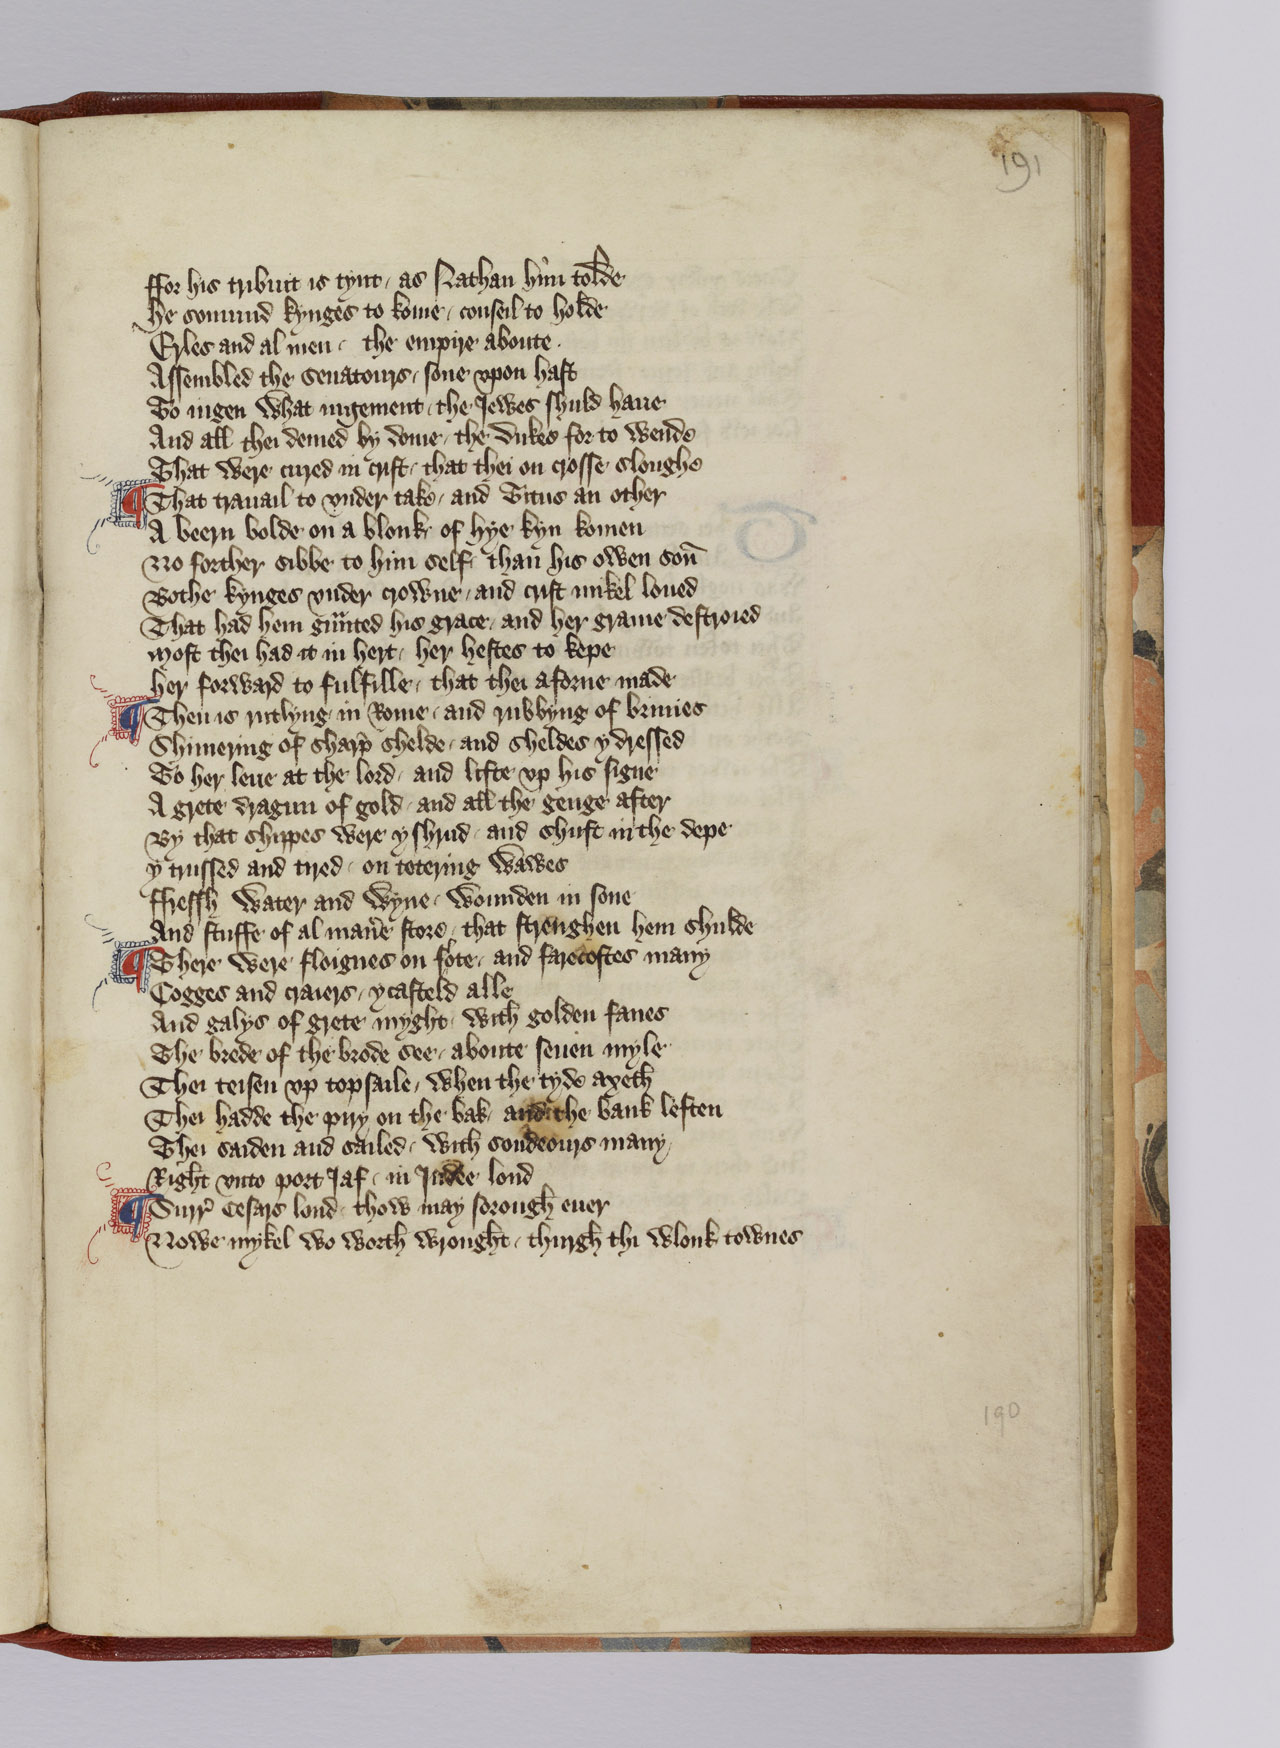 191
ffor his tribuit is tynt / as Nathan him tolde
he somund kynges to kome / conseil to holde
Erles and al men / the empire aboute .
Assembled the senatours / sone vpon hast
To iugen what iugement / the Jewes shuld haue
And all thei demed by dome / the dukes for to wende
That were cured in crist / that thei on crosse sloughe
¶ That trauail to vnder take / and Titus an other
A beern bolde on a blonk / of hye kyn komen
No forther sibbe to him self / than his owen son
Bothe kynges vnder crowne / and crist mikel loued
That had hem gᵃnted his grace / and her grame destroied
Most thei had it in hert / her hestes to kepe
her forward to fulfille / that thei aforne made
¶ Then is rutlyng in Rome / and rubbyng of brinies
Shimering of sharp shelde / and sheldes y dressed
To her leue at the lord / and lifte vp his signe
A grete dragun of gold / and all the genge after
By that shippes were y shrud / and shuft in the depe
y trussed and tired / on totering wawes
ffressh water and wyne / wounden in sone
And stuffe of al manere store / that strenghen hem shulde
¶ There were floignes on flote / and farecostes many
Cogges and craiers / ycasteld alle
And galys of grete myght / with golden fanes
The brede of the brode see / aboute seuen myle
Thei teisen vp topsaile / when the tyde axeth
Thei hadde the piry on the bak / and the bank leften
Thei saiden and sailed / with soudeours many
Right vnto port Jaf / in Judee lond
¶ Surre Cesars lond / thow may sorough euer
Nowe mykel wo worth wrought / thurgh thi wlonk townes
190